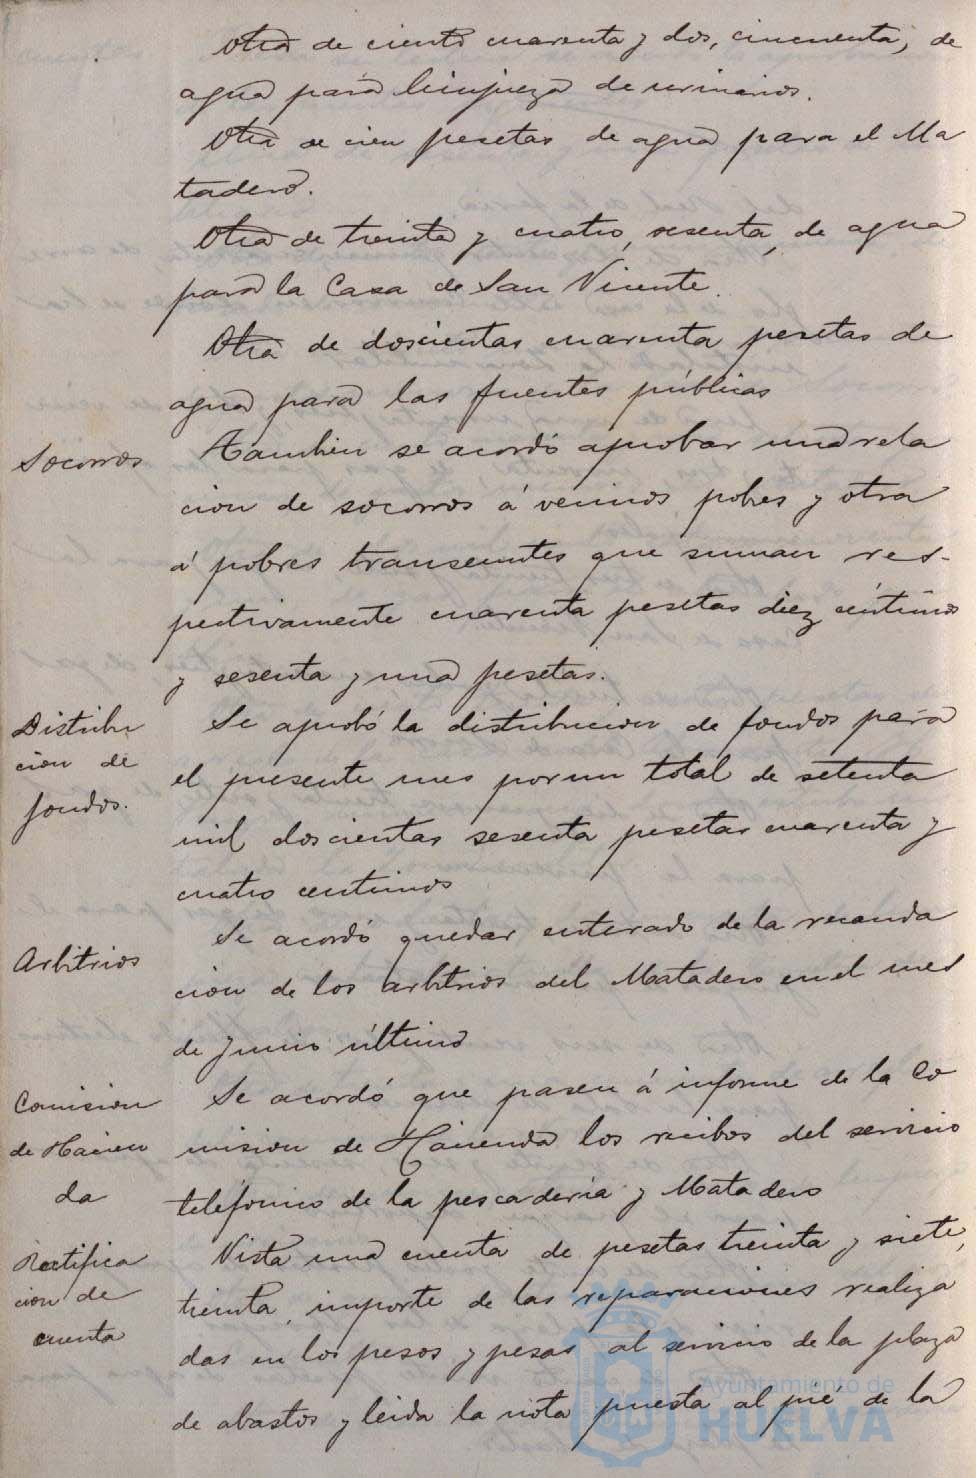 Otra de ciento cuarenta y dos, cincuenta, de
agua para limpieza de urinarios.
Otra de cien pesetas de agua para el Ma
tadero.
Otra de treinta y cuatro, sesenta, de agua
para la Casa de San Vicente.
Otra de doscientas cuarenta pesetas de
agua para las fuentes públicas
Socorros
Tambien se acordó aprobar una rela
cion de socorros á vecinos pobres y otra
á pobres transeuntes que suman res-
pectivamente cuarenta pesetas diez céntimos
y sesenta y una pesetas.
Distribu
cion de
fondos.
Se aprobó la distribucion de fondos para
el presente mes por un total de setenta
mil doscientas sesenta pesetas cuarenta y
cuatro centimos
Arbitrios
Se acordó quedar enterado de la recauda
cion de los arbitrios del Matadero en el mes
de Junio último
Comision
de Hacien
da
Se acordó que pasen á informe de la Co
mision de Hacienda los recibos del servicio
telefónico de la pescaderia y Matadero
Rectifica
cion de
cuenta
Vista una cuenta de pesetas treinta y siete,
treinta, importe de las reparaciones realiza
das en los pesos y pesas al servicio de la plaza
de abastos y leida la nota puesta al pié de la
Ayuntamiento de
HUELVA